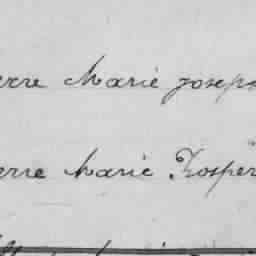 erre Marie joseph
erre Marie Prosper